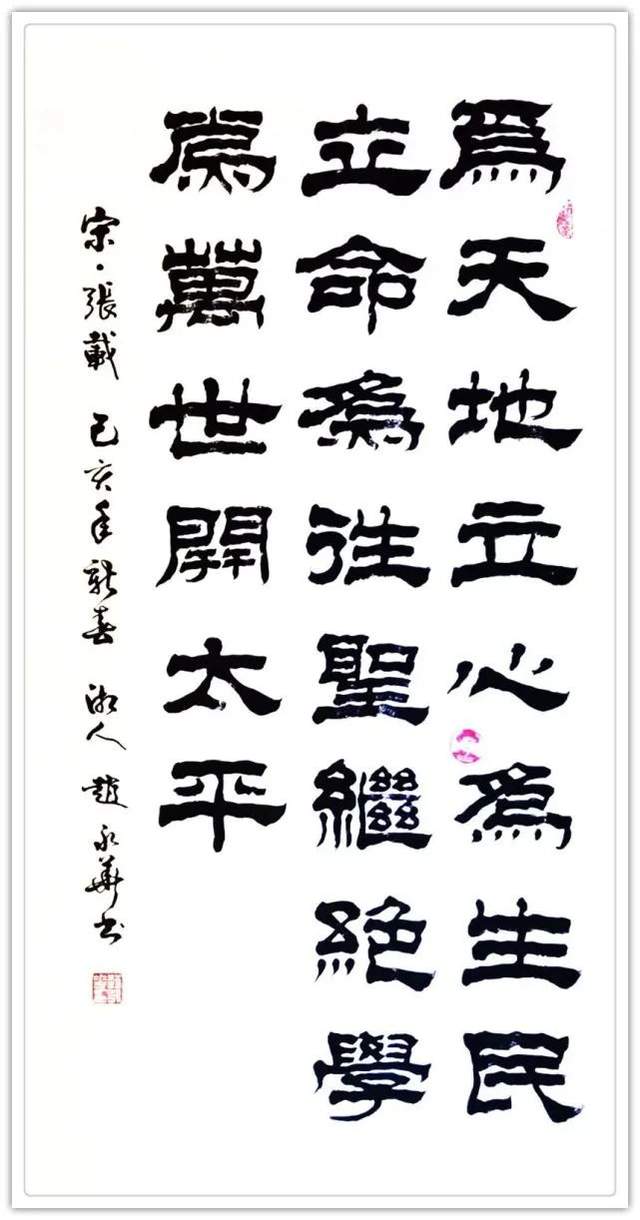 爲天地立心爲生民
立命爲往聖繼絕學
爲萬世開太平
宋·張載 己亥年新春 湘人 趙永華書